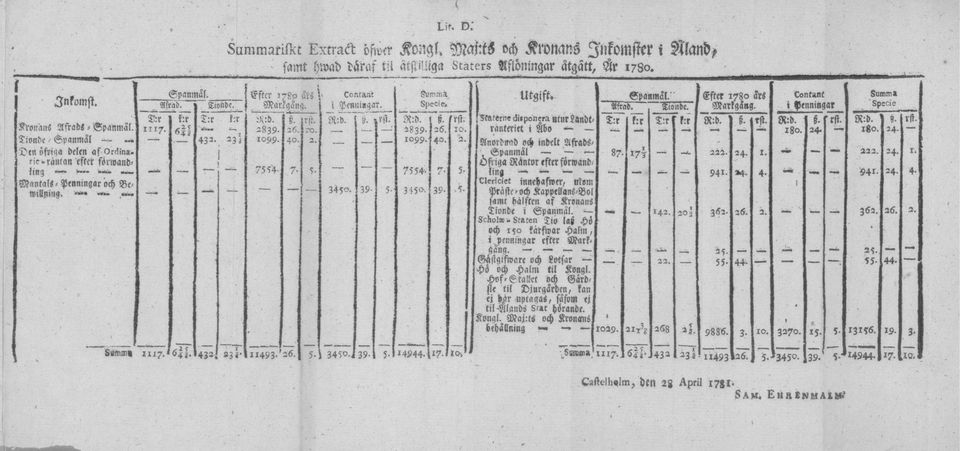 Lit. D.
Summariskt Extract öfwer Kongl. Maj:ts och Kronans Inkomster i Åland,
samt hwad däraf til åtskilliga Staters Aflöningar åtgått, År 1780.
Inkomst. | Spanmål. | Efter 1780 års Markgång. | Contant i Penningar. | Summa Specie.
Afrad. | Tionde.
T:r | k:r | T:r | k:r | R:d. | ß. | rst. | R:d. | ß. | rst. | R:d. | ß. | rst.
Kronans Afrads-Spanmål. | 1117. | — | — | 2839. | 26. | 10. | — | — | — | 2839. | 26. | 10.
Tionde-Spanmål — — | — | — | 432. | 23½ | 1099. | 40. | 2. | — | — | — | 1099. | 40. | 2.
Den öfriga delen af Ordina-
rie-räntan efter förwand-
ling — — — — | — | — | — | — | 7554. | 7. | 5. | — | — | — | 7554. | 7. | 5.
Mantals-Penningar och Be-
willning. — — — | — | — | — | — | — | — | — | 3450. | 39. | 5. | 3450. | 39. | 5.
Summa | 1117. | 432 | 23½ | 11493. | 26. | 5. | 3450. | 39. | 5. | 14944. | 17. | 10.
Utgift. | Spanmål. | Efter 1780 års Markgång. | Contant i Penningar | Summa Specie
Afrad. | Tionde.
T:r | k:r | T:r | k:r | R:d. | ß. | rst. | R:d. | ß. | rst. | R:d. | ß. | rst.
Staterne disponera utur Landt-
ränteriet i Åbo — | — | — | — | — | — | — | — | 180. | 24. | — | 180. | 24. | —
Anordnad och indelt Afrads-
Spanmål — — — | 87. | — | — | 222. | 24. | 1. | — | — | — | 222. | 24. | 1.
Öfriga Räntor efter förwand-
ling — — — | — | — | — | — | 941. | 24. | 4. | — | — | — | 941. | 24. | 4.
Clericiet innehafwer, utom
Präste- och Kappellans-Bol
samt hälften af Kronans
Tionde i Spanmål. — | — | — | 142. | 20½ | 362. | 26. | 2. | — | — | — | 362. | 26. | 2.
Schole-Staten Tio laß Hö
och 150 kärfwar Halm,
i penningar efter Mark-
gång. — — — | — | — | — | — | 25. | — | — | — | — | — | 25. | — | —
Gästgifware och Lotsar — | — | — | 22. | — | 55. | 44. | — | — | — | — | 55. | 44. | —
Hö och Halm til Kongl.
Hof-Stallet och Gärd-
sle til Djurgården, kan
ej här uptagas, såsom ej
til Ålands Stat hörande.
Kongl. Maj:ts och Kronans
behållning — — — | 1029. | 268 | 9886. | 3. | 10. | 3270. | 15. | 5. | 13156. | 19. | 3.
Summa | 1117. | 432 | 23½ | 11493 | 26. | 5. | 3450. | 39. | 5. | 14944. | 17. | 10.
Castelholm, den 28 April 1781.
SAM. EHRENMALM.